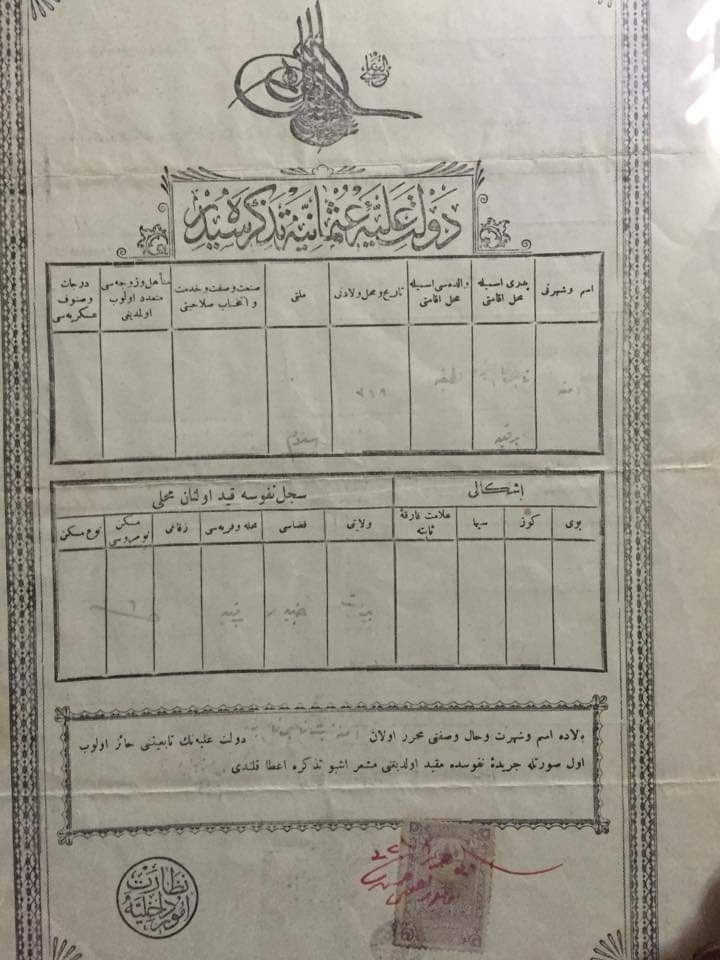 الغازی
دولت علیهٔ عثمانیه تذکره سیدر
اسم وشهرتی
پدری اسمیله محل اقامتی
والده سی اسمیله محل اقامتی
تاریخ ومحل ولادتی
ملتی
صنعت وصفت وخدمت و انتخاب صلاحیتی
متأهل وزوجه سی متعدد اولوب اولمدیغی
درجات وصنوف عسکریه سی
امنه
لطیفه
٣١٩
اسلام
اشکالی
سجل نفوسه قید اولنان محلی
بوی
کوز
سیما
علامت فارقهٔ ثابته
ولایتی
قضاسی
محله وقریه سی
زقاغی
مسکن نومروسی
نوع مسکن
بیروت
بالاده اسم وشهرت وحال وصفتی محرر اولان امنه بنت دولت علیه نك تابعیتنی حائز اولوب
اول صورتله جریدهٔ نفوسده مقید اولدیغنی مشعر اشبو تذکره اعطا قلندی
نظارت امور داخلیه